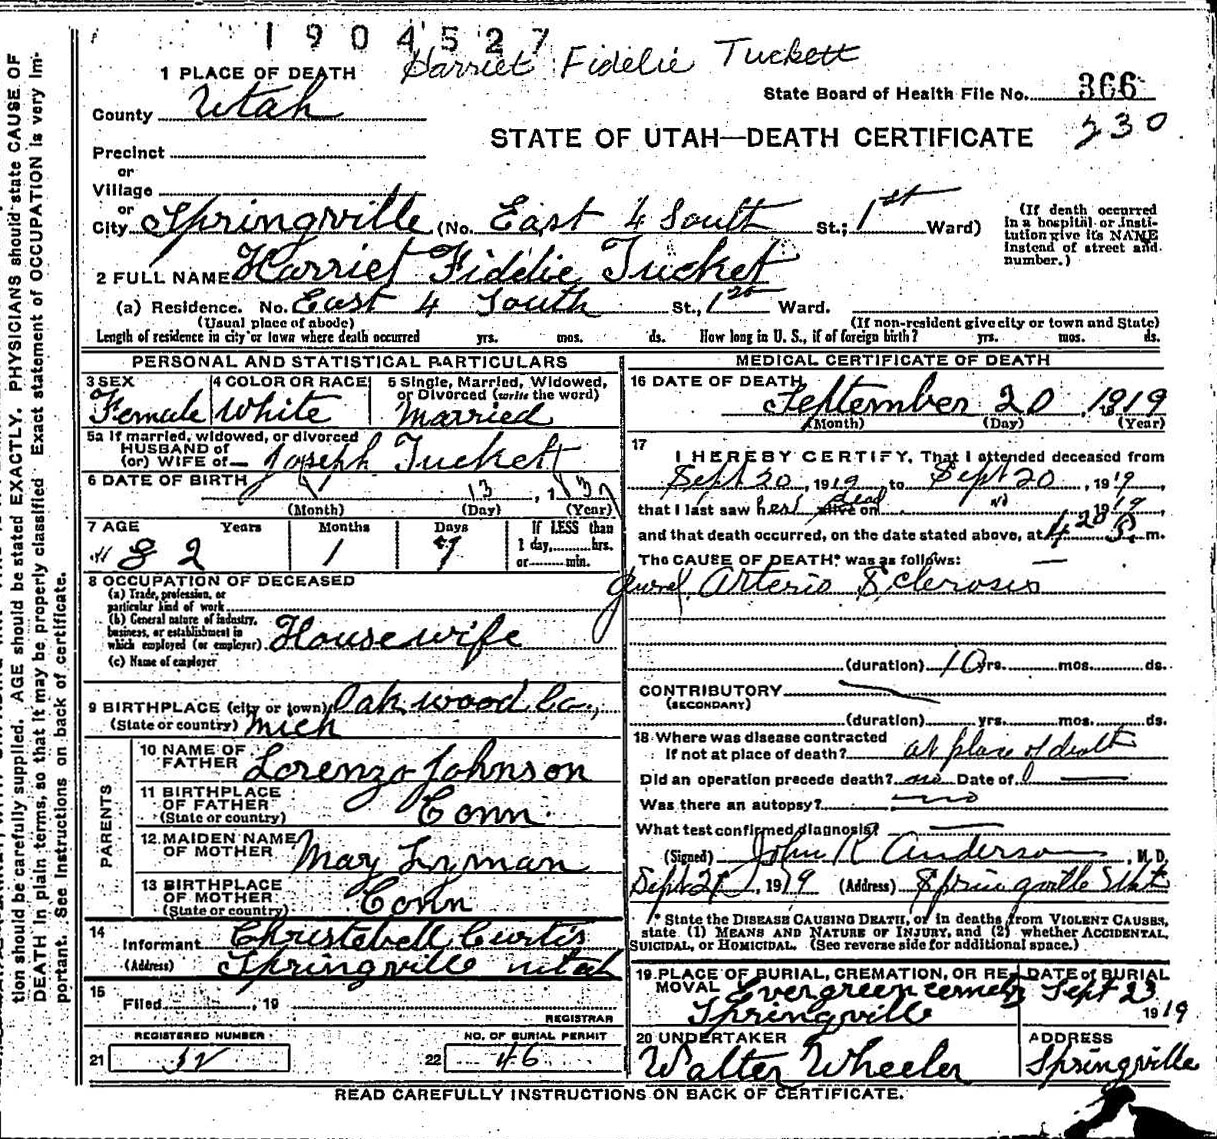 1904527
Harriet Fidelie Tuckett
1 PLACE OF DEATH
County Utah
State Board of Health File No. 366
230
STATE OF UTAH—DEATH CERTIFICATE
Precinct
or
Village
or
City Springville (No. East 4 South St.; 1st Ward)
(If death occurred in a hospital or institution give its NAME instead of street and number.)
2 FULL NAME Harriet Fidelie Tucket
(a) Residence. No. East 4 South St., 1st Ward.
(Usual place of abode) (If non-resident give city or town and State)
Length of residence in city or town where death occurred yrs. mos. ds. How long in U. S., if of foreign birth? yrs. mos. ds.
PERSONAL AND STATISTICAL PARTICULARS
3 SEX
Female
4 COLOR OR RACE
White
5 Single, Married, Widowed,
or Divorced (write the word)
Married
5a If married, widowed, or divorced
HUSBAND of
(or) WIFE of— Joseph Tuckett
6 DATE OF BIRTH
13, 1837
(Month) (Day) (Year)
7 AGE Years Months Days
82 1 7
If LESS than
1 day, hrs.
or min.
8 OCCUPATION OF DECEASED
(a) Trade, profession, or
particular kind of work
(b) General nature of industry,
business, or establishment in
which employed (or employer) Housewife
(c) Name of employer
9 BIRTHPLACE (city or town) Oakwood Co.,
(State or country) Mich
PARENTS
10 NAME OF
FATHER Lorenzo Johnson
11 BIRTHPLACE
OF FATHER
(State or country) Conn.
12 MAIDEN NAME
OF MOTHER May Lyman
13 BIRTHPLACE
OF MOTHER
(State or country) Conn
14
Informant Christebell Curtis
(Address) Springville utah
15
Filed , 19
REGISTRAR
REGISTERED NUMBER
21 52
NO. OF BURIAL PERMIT
22 46
MEDICAL CERTIFICATE OF DEATH
16 DATE OF DEATH
September 20 1919
(Month) (Day) (Year)
17
I HEREBY CERTIFY, That I attended deceased from
Sept 20, 1919, to Sept 20, 1919,
that I last saw her dead alive on , 1919
and that death occurred, on the date stated above, at 4 20 P. m.
The CAUSE OF DEATH* was as follows:
General Arterio Sclerosis
(duration) 10 yrs. mos. ds.
CONTRIBUTORY
(SECONDARY)
(duration) yrs. mos. ds.
18 Where was disease contracted
If not at place of death? at place of death
Did an operation precede death? no Date of
Was there an autopsy? no
What test confirmed diagnosis?
(Signed) John R Anderson, M. D.
Sept 21, 1919 (Address) Springville Utah
* State the DISEASE CAUSING DEATH, or in deaths from VIOLENT CAUSES,
state (1) MEANS AND NATURE OF INJURY, and (2) whether ACCIDENTAL,
SUICIDAL, or HOMICIDAL. (See reverse side for additional space.)
19 PLACE OF BURIAL, CREMATION, OR RE-
MOVAL Evergreen cemety
Springville
DATE of BURIAL
Sept 23
1919
20 UNDERTAKER
Walter Wheeler
ADDRESS
Springville
READ CAREFULLY INSTRUCTIONS ON BACK OF CERTIFICATE.
tion should be carefully supplied. AGE should be stated EXACTLY. PHYSICIANS should state CAUSE OF
DEATH in plain terms, so that it may be properly classified. Exact statement of OCCUPATION is very im-
portant. See Instructions on back of certificate.